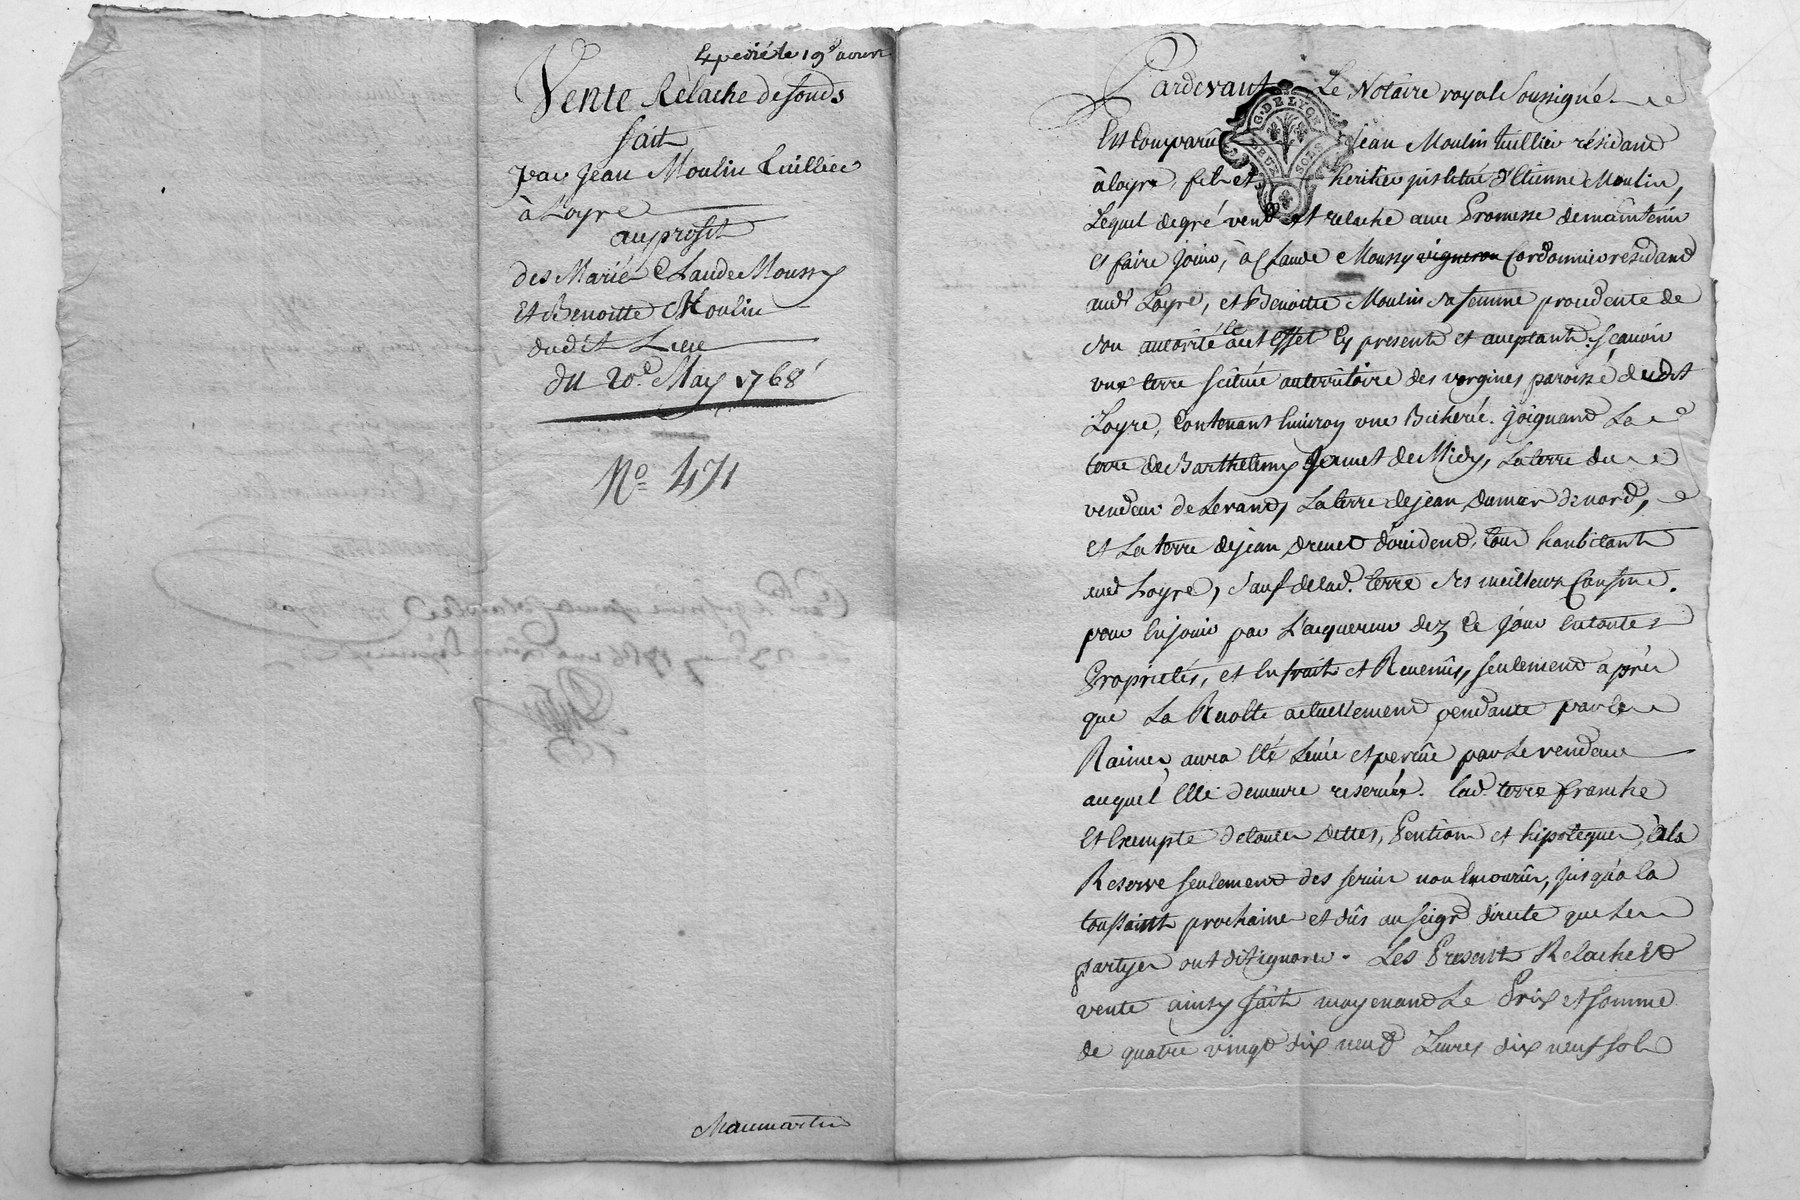 Expedié le 19e
Vente Relache de fonds
fait
par Jean Moulin tuillier
à Loyre
au profit
des Mariés Claude Moussy
Et Benoitte Moulin
dudit Lieu
du 20e May 1768
No 471
Maumartin
Pardevant Le Notaire royal Soussigné
Est Comparu Jean Moulin tuillier résidand
à loyre, fils et heritier institué d'Etienne Moulin,
Lequel de gré vend et relache avec Promesse de maintenir
et faire Jouir, à Claude Moussy vigneron Cordonnier residand
aud. Loyre, et Benoitte Moulin sa femme procedente de
son autorité a cet effet Icy presente et acceptante. Scavoir
une terre scituée au territoire des vergines paroisse dudit
Loyre, Contenant Environ une Bicherée. Joignand La
terre de Barthelemy de Midy, La terre du
vendeur de Levand, La terre de jean de nord,
et La terre de jean Drevet d'occident, tous habitants
aud. Loyre, sauf de lad. terre ses meilleurs Confins.
pour En jouir par L'acquereur dez Ce Jour En toutes
Proprietés, et En fruits et Revenûs, seulement après
que La Recolte actuellement pendante par les
Raines aura Eté Levée et percûe par Le vendeur
auquel Elle demeure reservée. lad. terre franche
Et Exempte de toutes dettes, Pentions et hipoteques, à la
Reserve seulement des servis non Encourûs, jusqu'a la
toussaint prochaine et dûs au seigr. directe que Les
partyes ont dit ignorer. Les Present Relache Et
vente ainsy fait moyenand Le Prix et somme
de quatre vingt dix neuf Livres dix neuf sols
G. DE LYON
DEUX SOLS